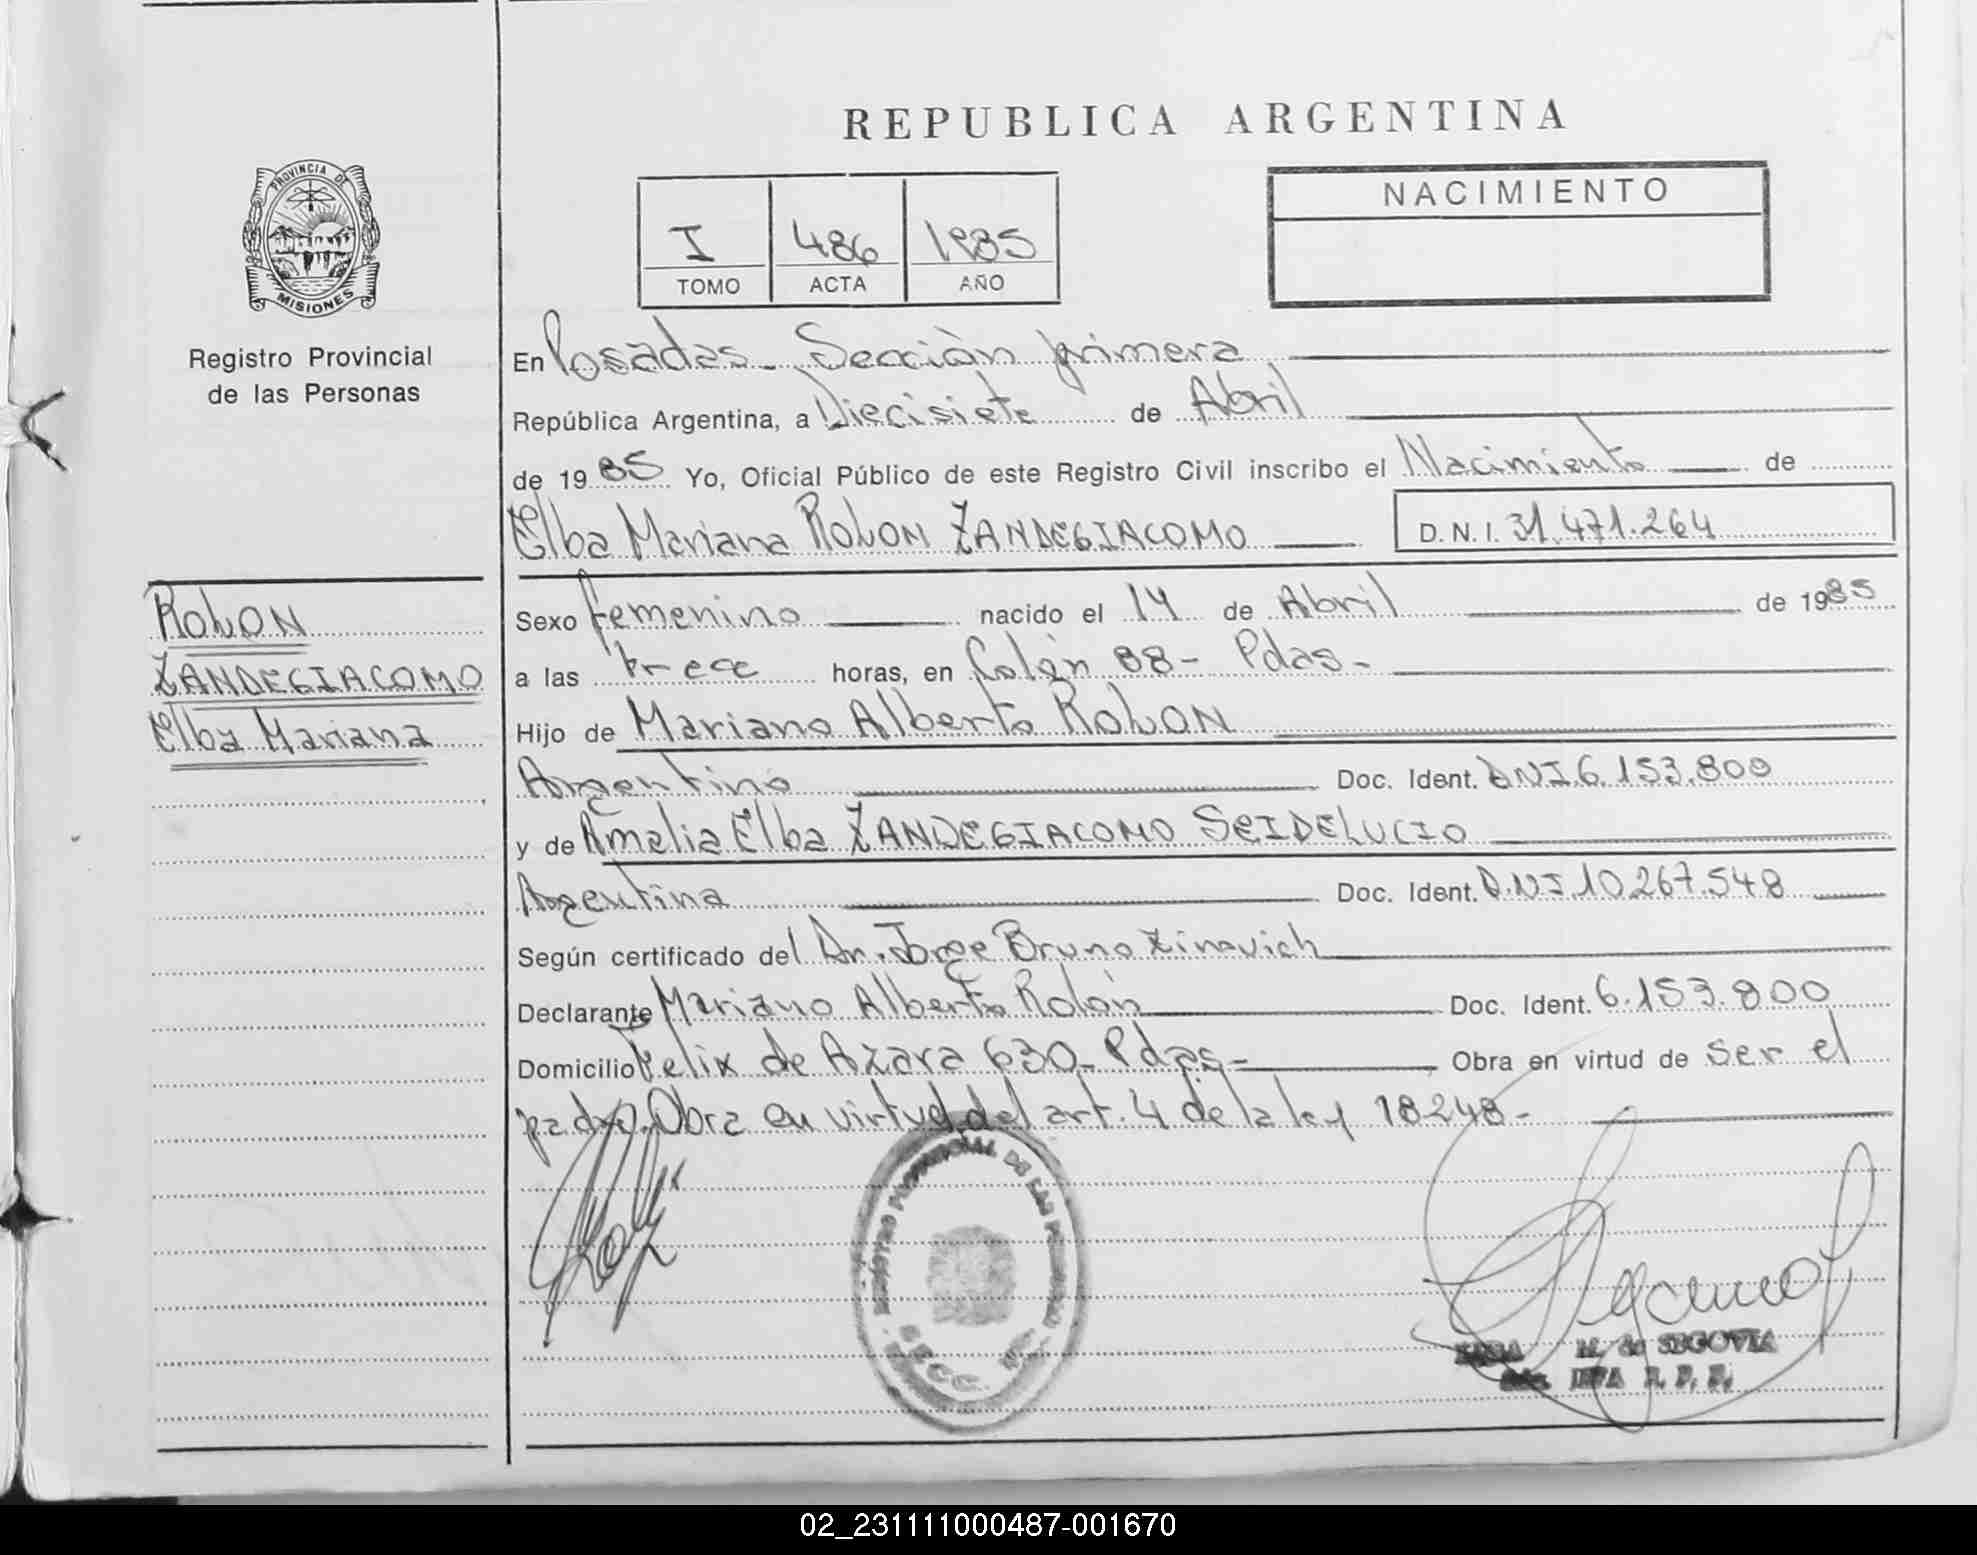 REPUBLICA ARGENTINA
PROVINCIA DE
MISIONES
Registro Provincial
de las Personas
I 486 1985
TOMO ACTA AÑO
NACIMIENTO
En Posadas Sección primera
República Argentina, a Diecisiete de Abril
de 1985 Yo, Oficial Público de este Registro Civil inscribo el Nacimiento de
Elba Mariana ROLON ZANDEGIACOMO D.N.I. 31.471.264
ROLON
ZANDEGIACOMO
Elba Mariana
Sexo femenino nacido el 14 de Abril de 1985
a las trece horas, en Colón 88- Pdas-
Hijo de Mariano Alberto ROLON
Argentino Doc. Ident. DNI 6.153.800
y de Amalia Elba ZANDEGIACOMO SEIDELUCIO
Argentina Doc. Ident. D.N.I 10.267.548
Según certificado del Dr. Jorge Bruno Zinovich
Declarante Mariano Alberto Rolón Doc. Ident. 6.153.800
Domicilio Felix de Azara 630- Pdas- Obra en virtud de ser el
padre. Obra en virtud del art. 4 de la ley 18248-
PROVINCIAL DE LAS
SECC.
M. de SEGOVIA
R. P. P.
02_231111000487-001670